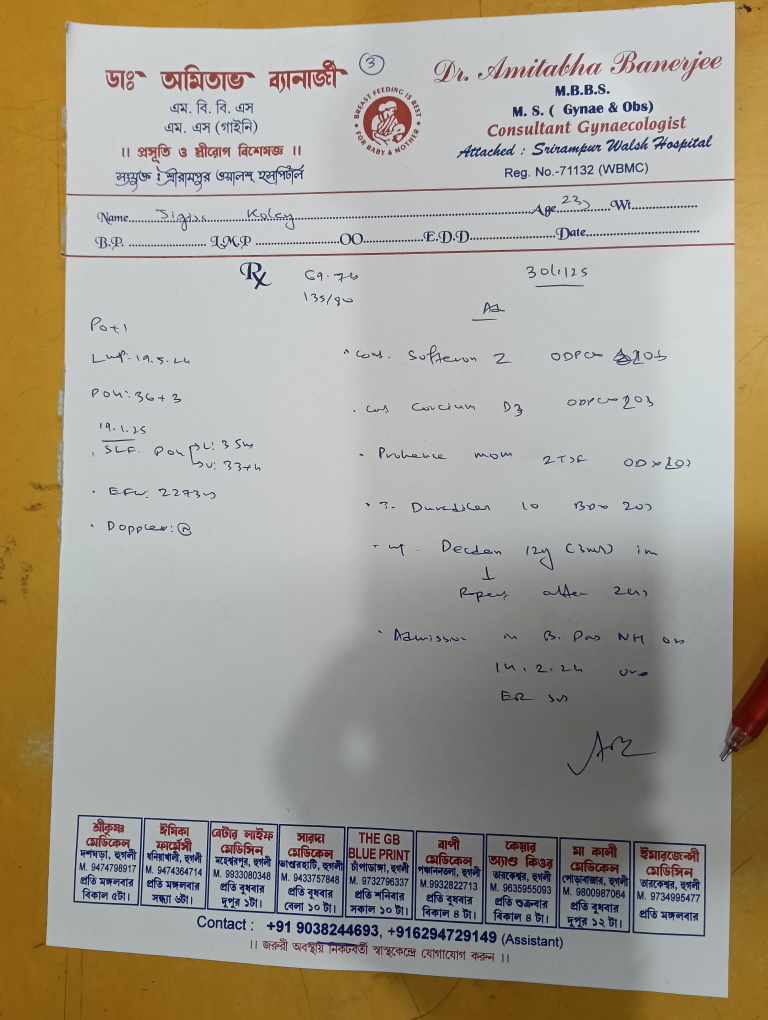 ③
ডাঃ অমিতাভ ব্যানার্জী
এম. বি. বি. এস
এম. এস (গাইনি)
।। প্রসূতি ও স্ত্রীরোগ বিশেষজ্ঞ ।।
সংযুক্ত : শ্রীরামপুর ওয়ালশ্ হসপিটাল
BREAST FEEDING IS BEST
FOR BABY & MOTHER
Dr. Amitabha Banerjee
M.B.B.S.
M. S. ( Gynae & Obs)
Consultant Gynaecologist
Attached : Srirampur Walsh Hospital
Reg. No.-71132 (WBMC)
Name Koley Age 23 Wt
B.P. L.M.P OO E.D.D Date
Rx 69.76 30/1/25
135/80
Ad
P0+1
LMP: 19.5.24
POG: 36+3
19.1.25
SLF. POG L: 35w
U: 33+4
EFW: 2273
Doppler: N
Softeron Z
D3
mom 2TSF OD
10 BD
12mg (3ml) im
↓
Repeat after
Admission in B. NH on
14.2.24
শ্রীকৃষ্ণ মেডিকেল
দশঘড়া, হুগলী
M. 9474798917
প্রতি মঙ্গলবার
বিকাল ৫টা।
ঈষিকা ফার্মেসী
ধনিয়াখালী, হুগলী
M. 9474364714
প্রতি মঙ্গলবার
সন্ধ্যা ৬টা।
বেটার লাইফ মেডিসিন
মহেশ্বরপুর, হুগলী
M. 9933080348
প্রতি বুধবার
দুপুর ১টা।
সারদা মেডিকেল
ভাণ্ডারহাটি, হুগলী
M. 9433757848
প্রতি বুধবার
বেলা ১০ টা।
THE GB BLUE PRINT
চাঁপাডাঙ্গা, হুগলী
M. 9732796337
প্রতি শনিবার
সকাল ১০ টা।
বাপী মেডিকেল
পঞ্চাননতলা, হুগলী
M.9932822713
প্রতি বুধবার
বিকাল ৪ টা।
কেয়ার অ্যাণ্ড কিওর
তারকেশ্বর, হুগলী
M. 9635955093
প্রতি শুক্রবার
বিকাল ৪ টা।
মা কালী মেডিকেল
পোড়াবাজার, হুগলী
M. 9800987064
প্রতি বুধবার
দুপুর ১২ টা।
ইমারজেন্সী মেডিসিন
তারকেশ্বর, হুগলী
M. 9734995477
প্রতি মঙ্গলবার
Contact : +91 9038244693, +916294729149 (Assistant)
।। জরুরী অবস্থায় নিকটবর্তী স্বাস্থ্যকেন্দ্রে যোগাযোগ করুন ।।